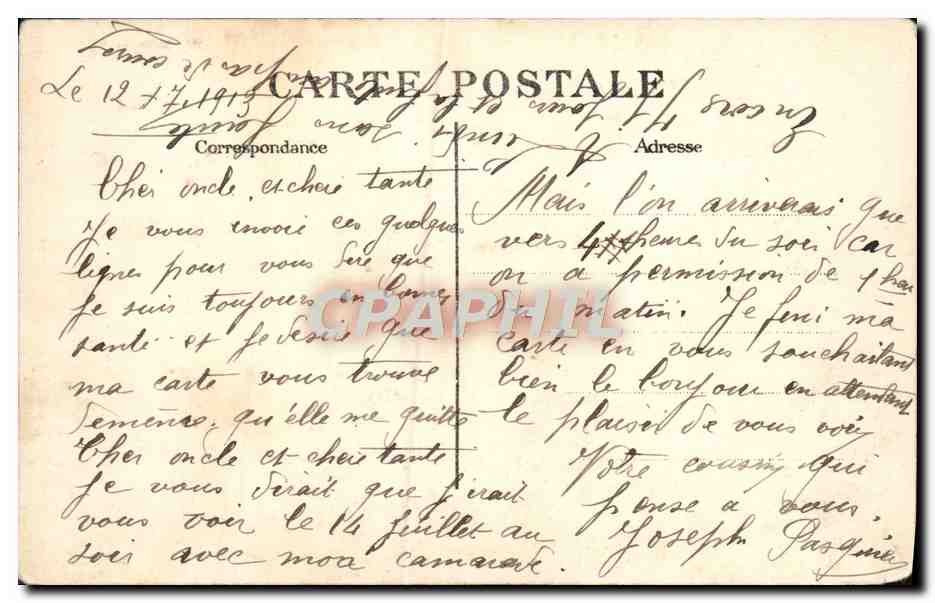 CARTE POSTALE
Le 12-7-1913
Correspondance
Adresse
Cher oncle et chere tante
Je vous envoie ces quelques
lignes pour vous dire que
je suis toujours en bonnes
santé et je desire que
ma carte vous trouve
demême qu'elle me quitte
Cher oncle et chere tante
je vous dirait que j'irait
vous voir le 14 juillet au
soir avec mon camarade.
Mais l'on arriverais que
vers 4 heures du soir car
on a permission de 1 heure
du matin. Je fini ma
carte en vous souhaitant
bien le bonjour en attendant
le plaisir de vous voir
Votre cousin qui
pense a vous.
Joseph Pasquier
Encore 71 jours et la fuite
CPARAMA